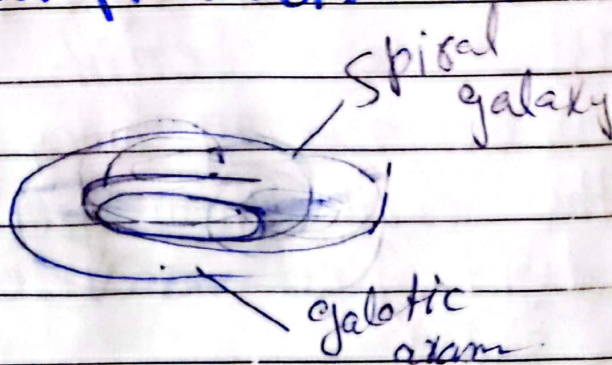 Spiral
galaxy
galatic
aram